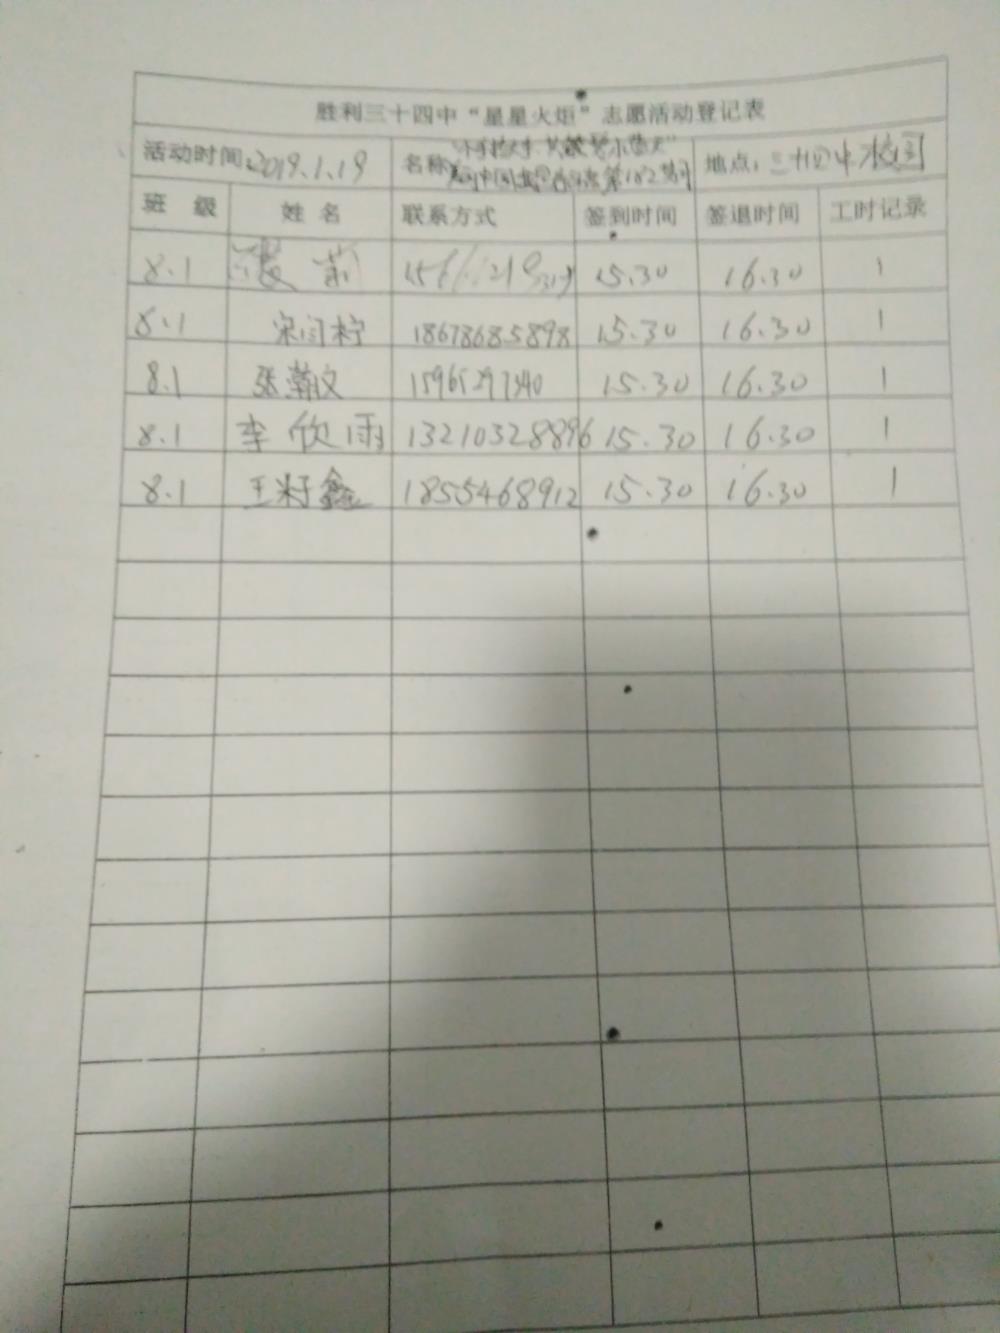 胜利三十四中“星星火炬”志愿活动登记表
活动时间:2019.1.19 名称 地点:三十四中校园
班 级 姓 名 联系方式 签到时间 签退时间 工时记录
8.1 15.30 16.30 1
8.1 宋闫柠 18678685898 15.30 16.30 1
8.1 张瀚文 15965297340 15.30 16.30 1
8.1 李欣雨 13210328896 15.30 16.30 1
8.1 王籽鑫 1855468912 15.30 16.30 1